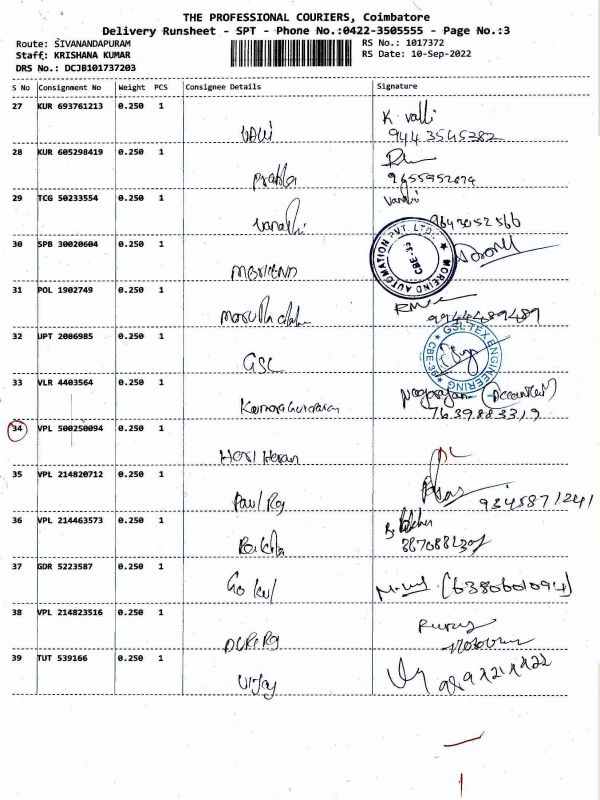 THE PROFESSIONAL COURIERS, Coimbatore
Delivery Runsheet - SPT - Phone No.:0422-3505555 - Page No.:3
Route: SIVANANDAPURAM
RS No.: 1017372
Staff: KRISHANA KUMAR
RS Date: 10-Sep-2022
DRS No.: DCJB101737203
S No Consignment No Weight PCS Consignee Details Signature
27 KUR 693761213 0.250 1
K valli
9443545282
28 KUR 605298419 0.250 1
Prabha
9655952874
29 TCG 50233554 0.250 1
Vanathi
9643052566
30 SPB 30020604 0.250 1
MOREIND
MOREIND AUTOMATION PVT. LTD. CBE-35
31 POL 1902749 0.250 1
9944489489
32 UPT 2086985 0.250 1
GSL
GSL TEX ENGINEERING CBE-35
33 VLR 4403564 0.250 1
Nagarajan (Accountant)
7639883319
34 VPL 500250094 0.250 1
Hari Haran
35 VPL 214820712 0.250 1
Paul Raj
9345871241
36 VPL 214463573 0.250 1
37 GDR 5223587 0.250 1
Gokul
(6380601094)
38 VPL 214823516 0.250 1
39 TUT 539166 0.250 1
Vijay